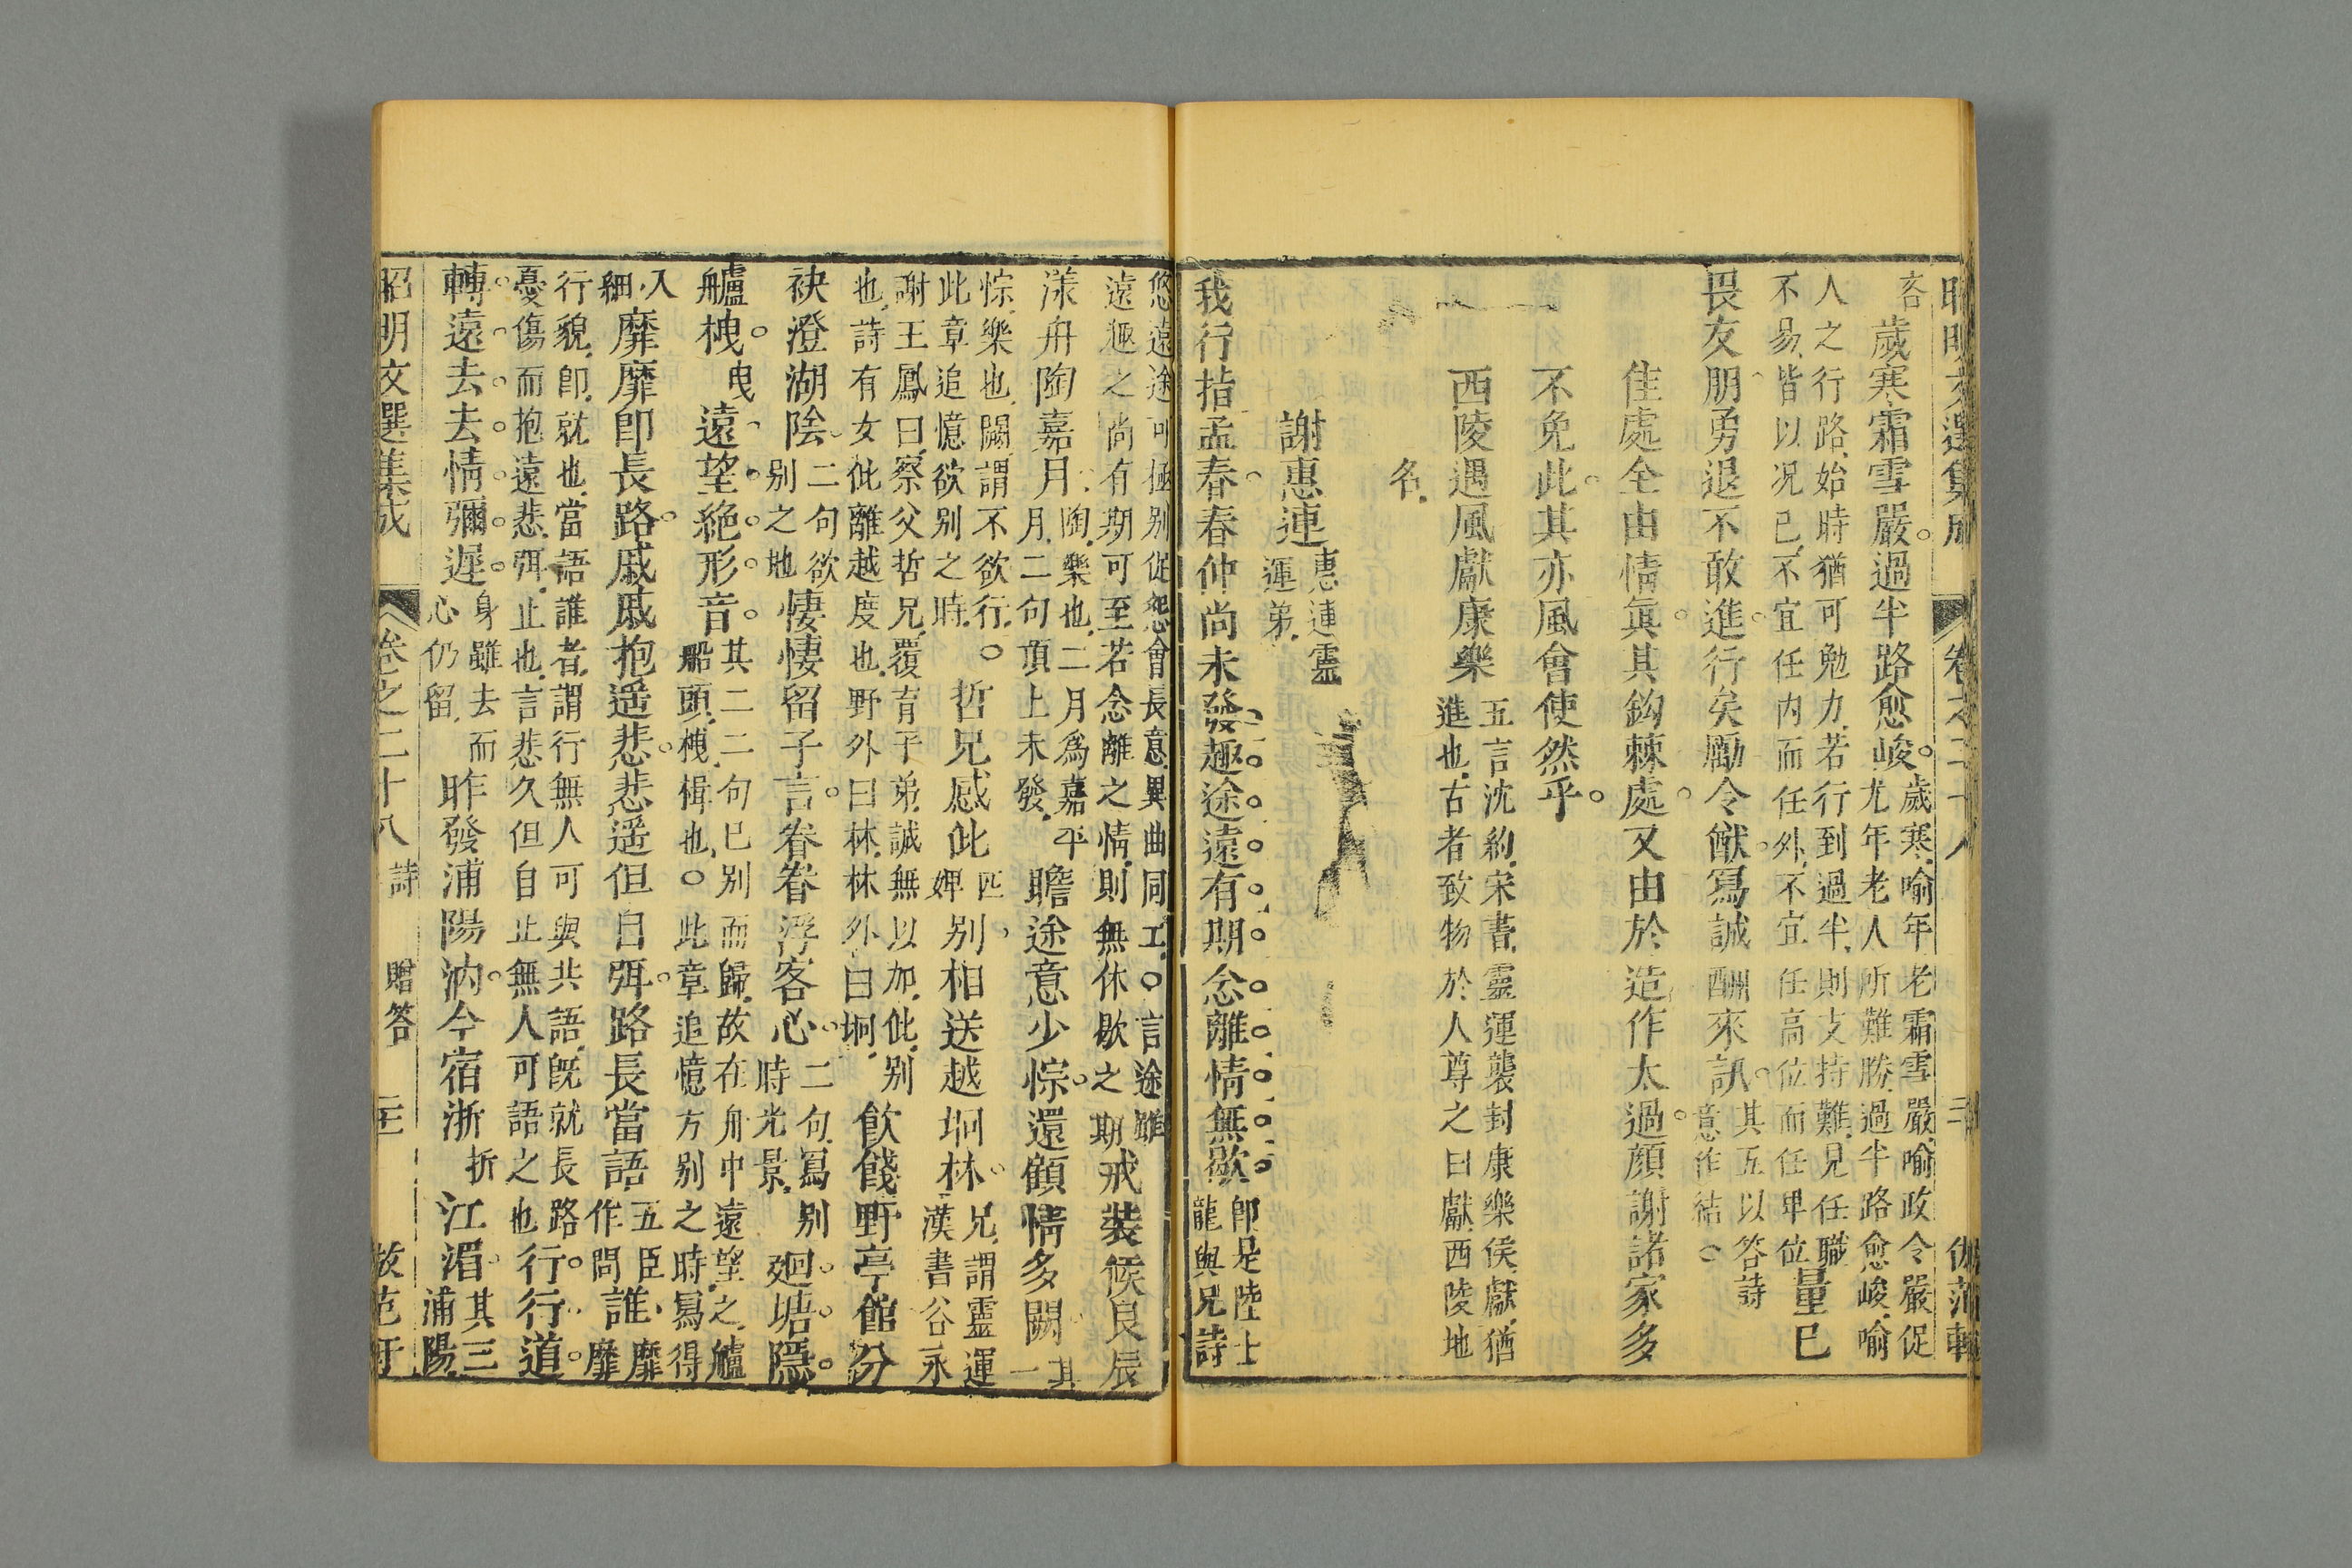 昭明文選集成 卷之二十八
吝歲寒霜雪嚴過半路愈峻歲寒喻年老霜雪嚴喻政令嚴促
尤年老人所難勝過半路愈峻喻
人之行路始時猶可勉力若行到過半則支持難見任職
不易皆以况已不宜任内而任外不宜任高位而任卑位量已
畏友朋勇退不敢進行矣勵令猷冩誠酬來訊其五以答詩
意作結
佳處全由情眞其鈎棘處又由於造作太過顔謝諸家多
不免此其亦風會使然乎
西陵遇風獻康樂五言沈約宋書靈運襲封康樂侯獻猶
進也古者致物於人尊之曰獻西陵地
名
謝惠連惠連靈
運弟
我行指孟春春仲尚未發趣途遠有期念離情無歇卽是陸士
龍與兄詩
悠遠途可極别促怨會長意異曲同工言途雖
遠趣之尚有期可至若念離之情則無休歇之期戒裝候良辰
漾舟陶嘉月陶樂也二月爲嘉平
月二句頂上未發瞻途意少悰還顧情多闕其
一
悰樂也闕謂不欲行
此章追憶欲别之時哲兄感仳匹
婢别相送越坰林兄謂靈運
漢書谷永
謝王鳳曰察父哲兄覆育子弟誠無以加仳别
也詩有女仳離越度也野外曰林林外曰坰飲餞野亭館分
袂澄湖陰二句欲
别之地悽悽留子言眷眷浮客心二句冩别
時光景廻塘隱
艫栧曳遠望絶形音其二二句已别而歸故在舟中遠望之艫
船頭栧楫也此章追憶方别之時冩得
入
細靡靡卽長路戚戚抱遥悲悲遥但自弭路長當語五臣
作問誰靡靡
行貌卽就也當語誰者謂行無人可與共語旣就長路
憂傷而抱遠悲弭止也言悲久但自止無人可語之也行行道
轉遠去去情彌遲身雖去而
心仍留昨發浦陽汭今宿浙折江湄其三
浦陽
昭明文選集成 卷之二十八 詩 贈答